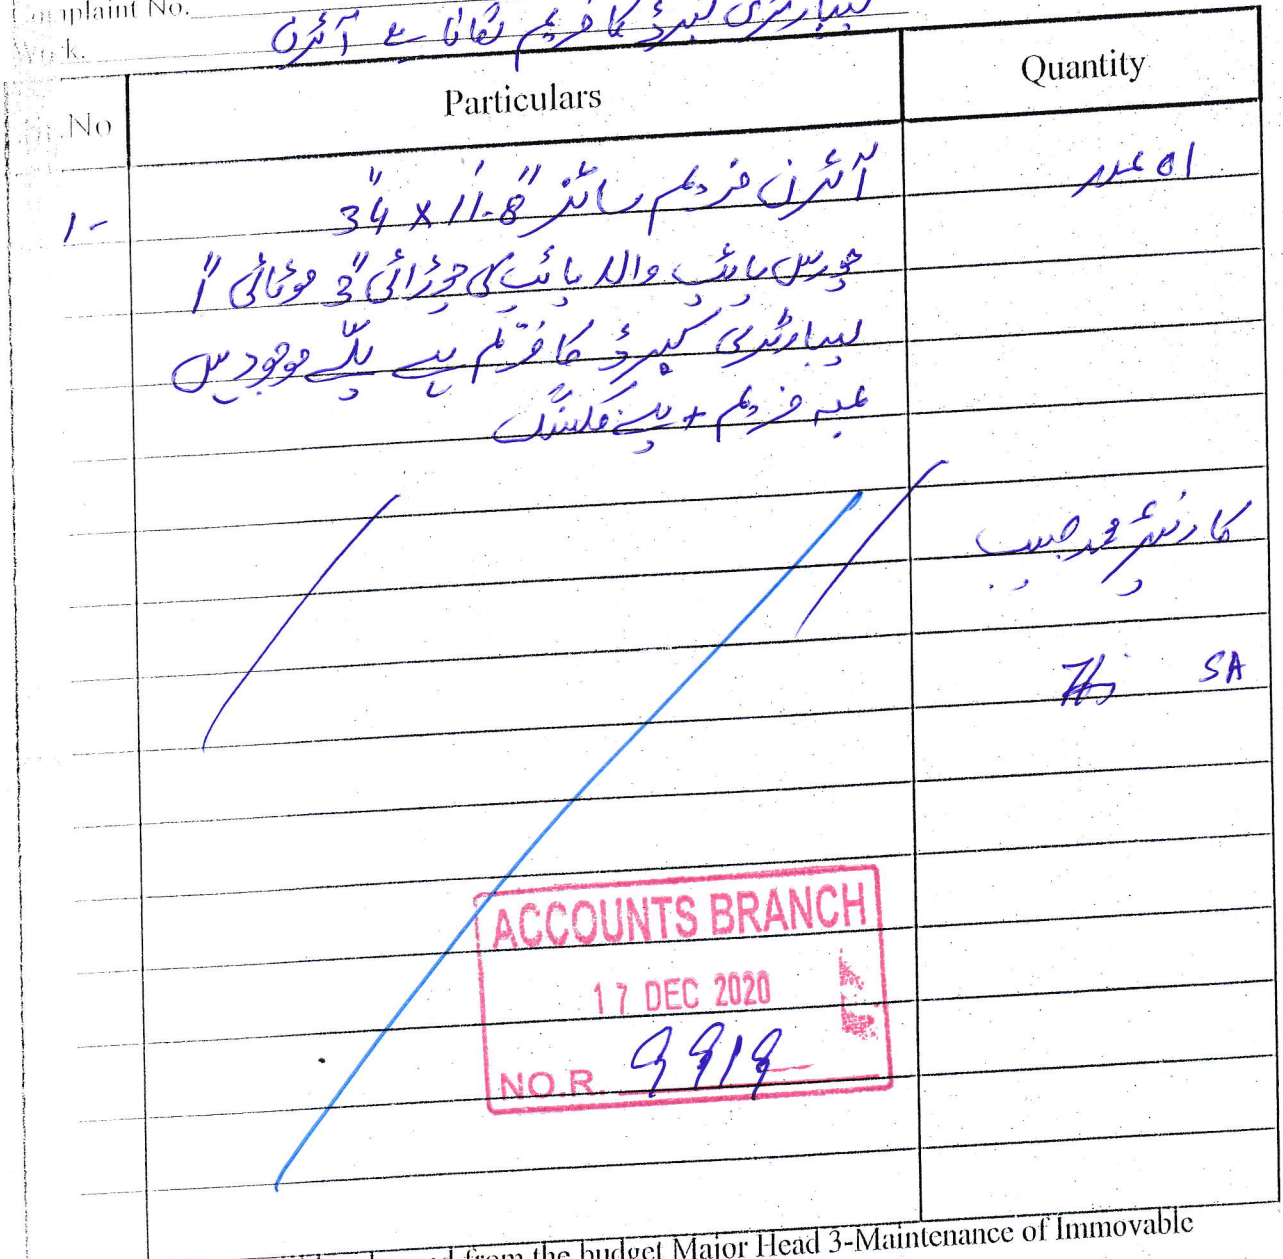 Complaint No.
Work. لیبارٹری کبرڈ کا فریم لگانا ہے آئرن
No Particulars Quantity
1- آئرن فریم سائز 34" x 11'-8" 01 عدد
چورس پائپ والا پائپ کی چوڑائی 3" موٹائی 1"
لیبارٹری کبرڈ کا فریم ہے پلّے موجود ہیں
بمعہ فریم +
کارپنٹر محمد حسیب
SA
ACCOUNTS BRANCH
17 DEC 2020
NO.R. 9919
from the budget Major Head 3-Maintenance of Immovable